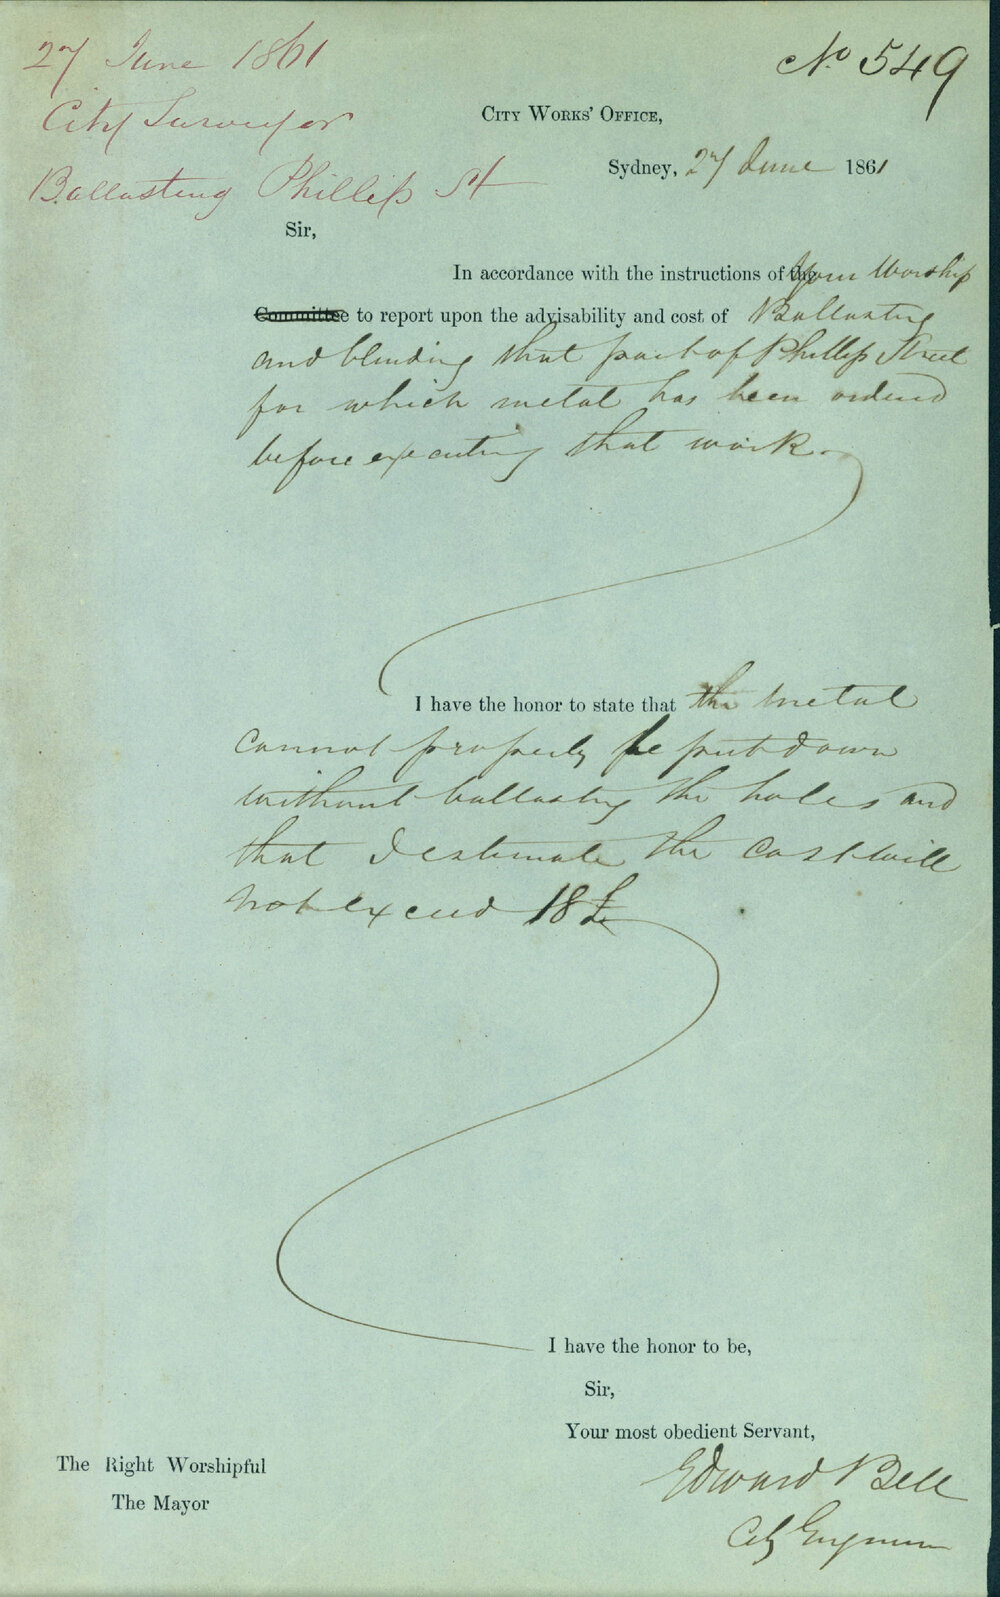 27 June 1861
City Surveyor
Ballasting Phillip St
No 549
CITY WORKS' OFFICE,
Sydney, 27 June 1861
Sir,
In accordance with the instructions of the Your Worship
Committee to report upon the advisability and cost of Ballasting
and blinding that part of Phillip Street
for which metal has been ordered
before executing that work
I have the honor to state that the metal
cannot properly be put down
without ballasting the holes and
that I estimate the cost will
not exceed 18£
I have the honor to be,
Sir,
Your most obedient Servant,
Edward Bell
City Engineer
The Right Worshipful
The Mayor